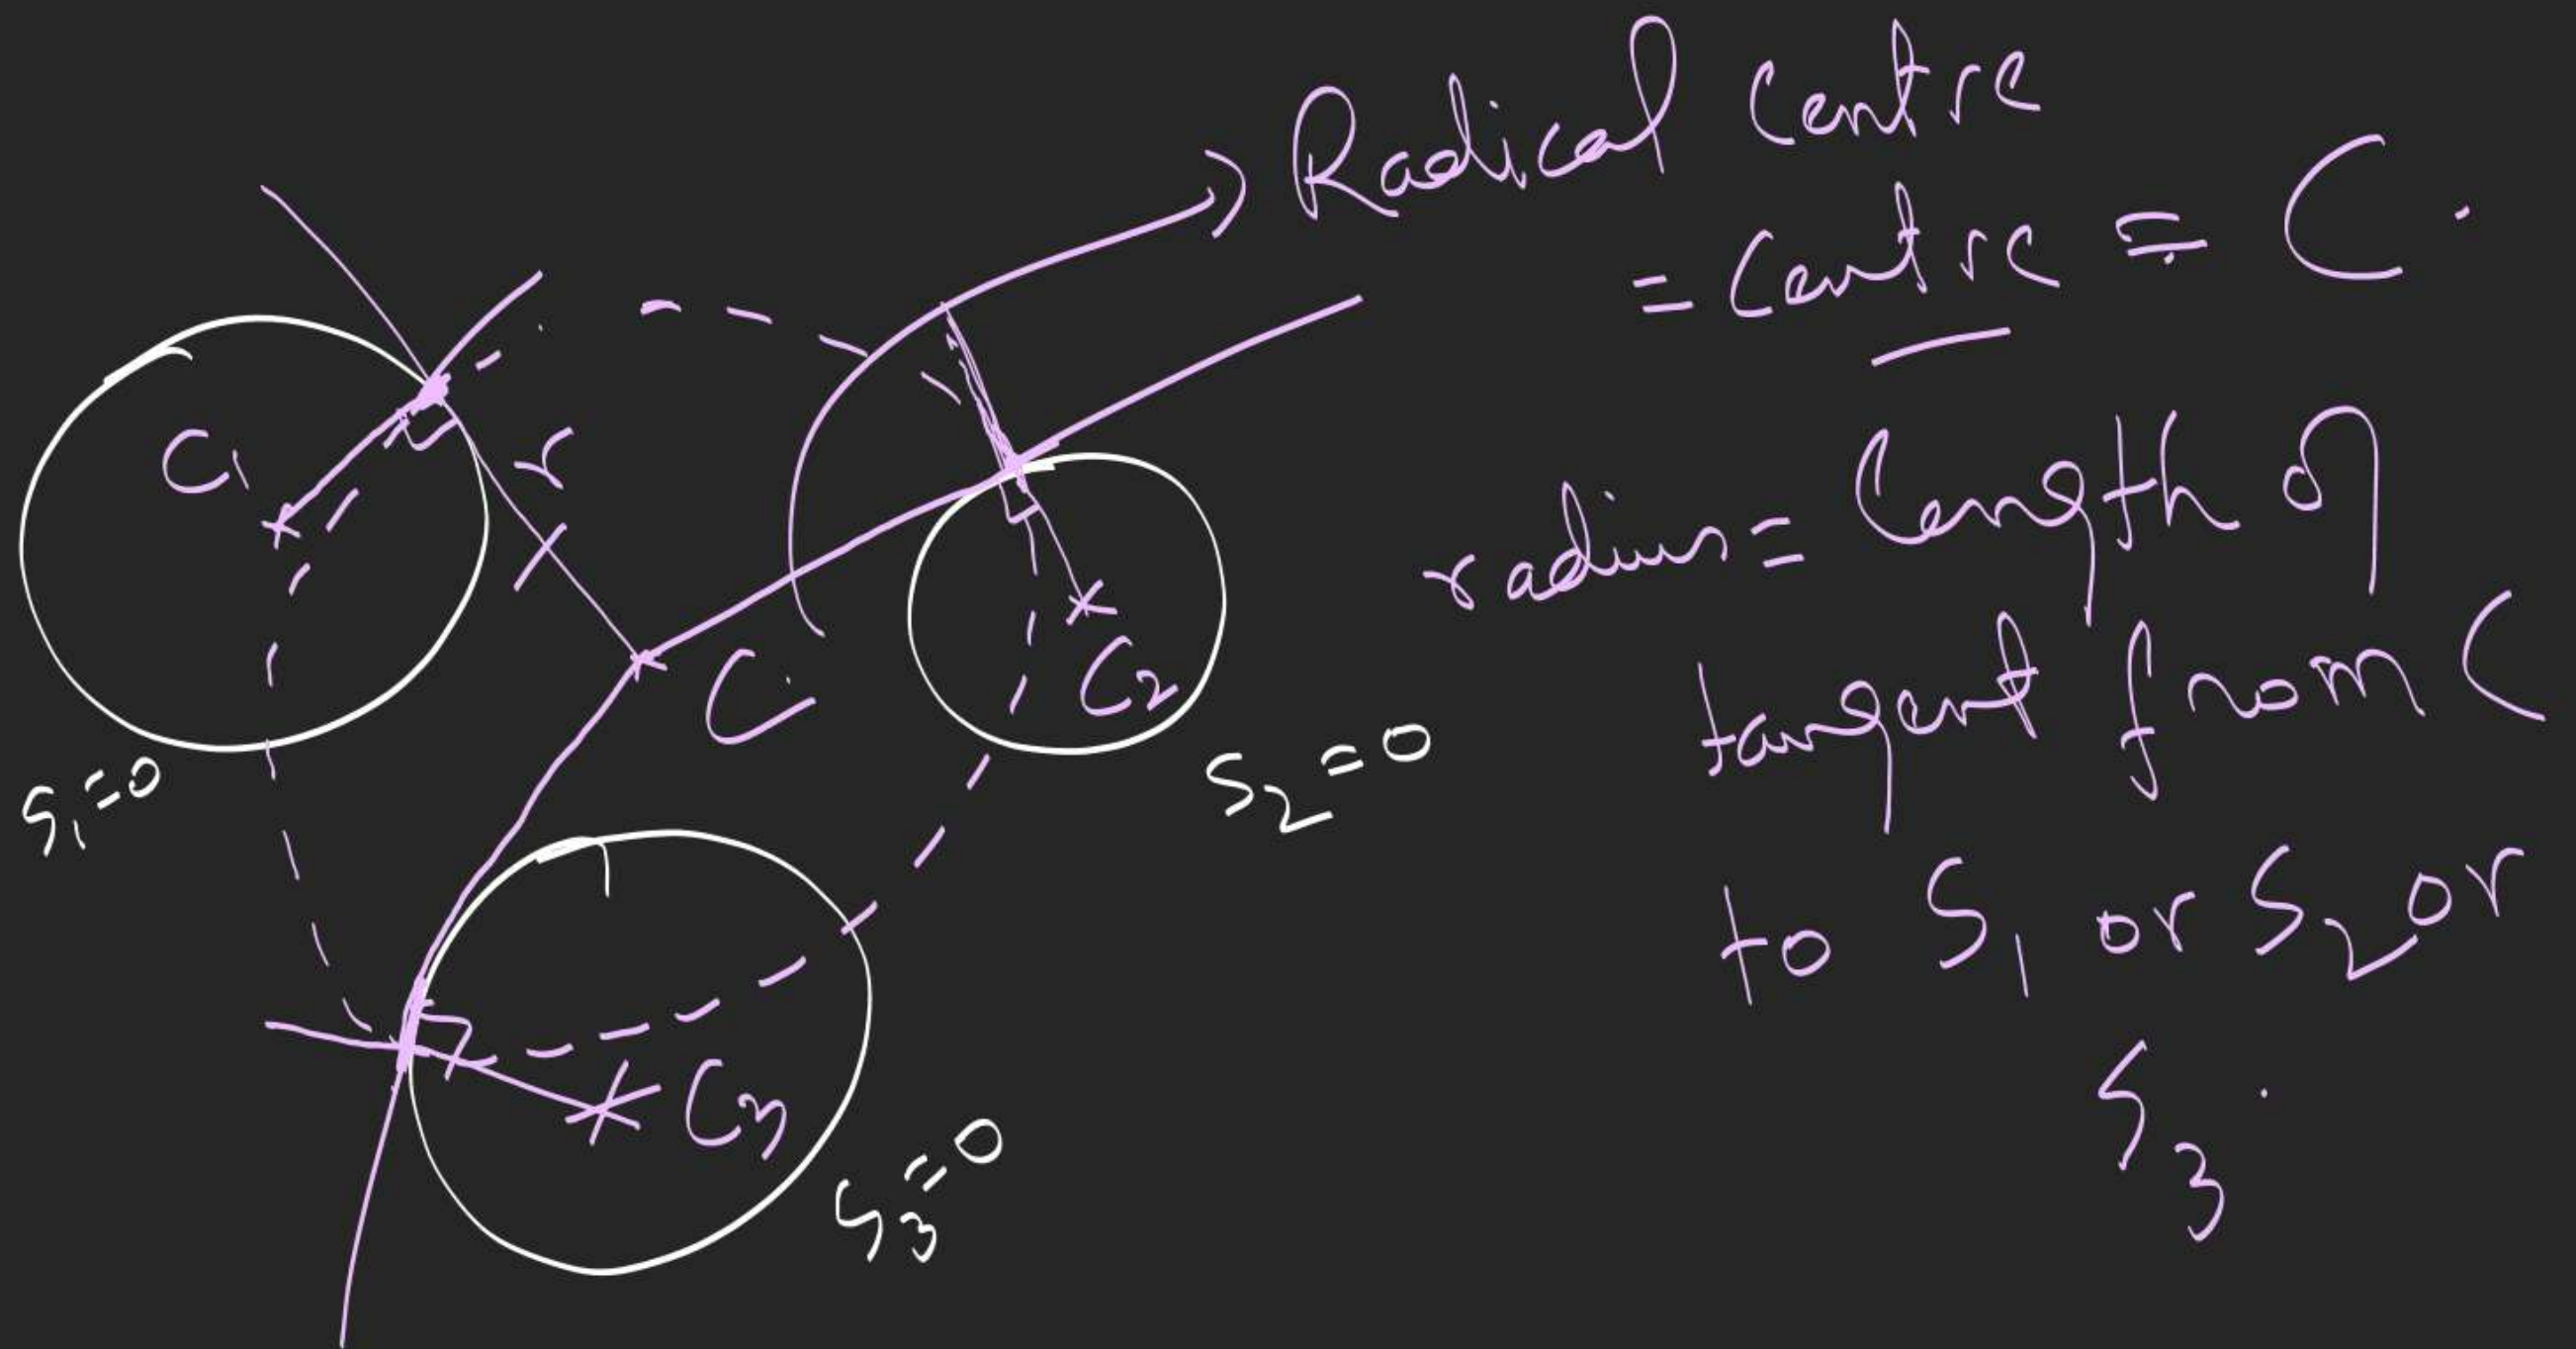 Radical Centre
= Centre = C.
radius = length of
tangent from C
to S1 or S2 or
S3.
C1
r
C
C2
S1=0
S2=0
C3
S3=0